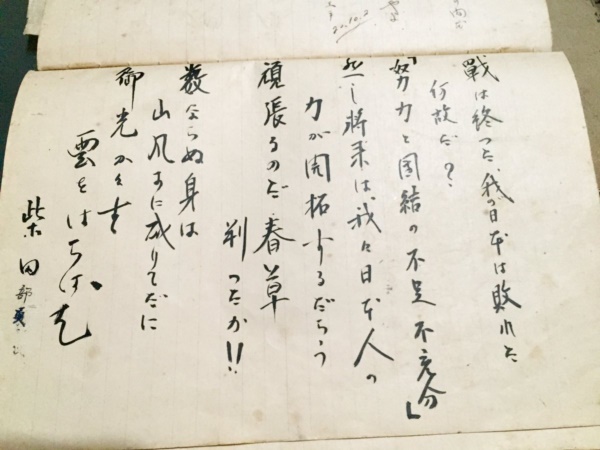 22.10.2
戰は終つた、我の日本は敗れた
何故だ?
「努力と團結の不足 不充分」
然し將来は我々日本人の
力が開拓するだらう
頑張るのだ春草
判つたか!!
數ならぬ身は
山風に成りてだに
御光かくす
雲をはら
柴田